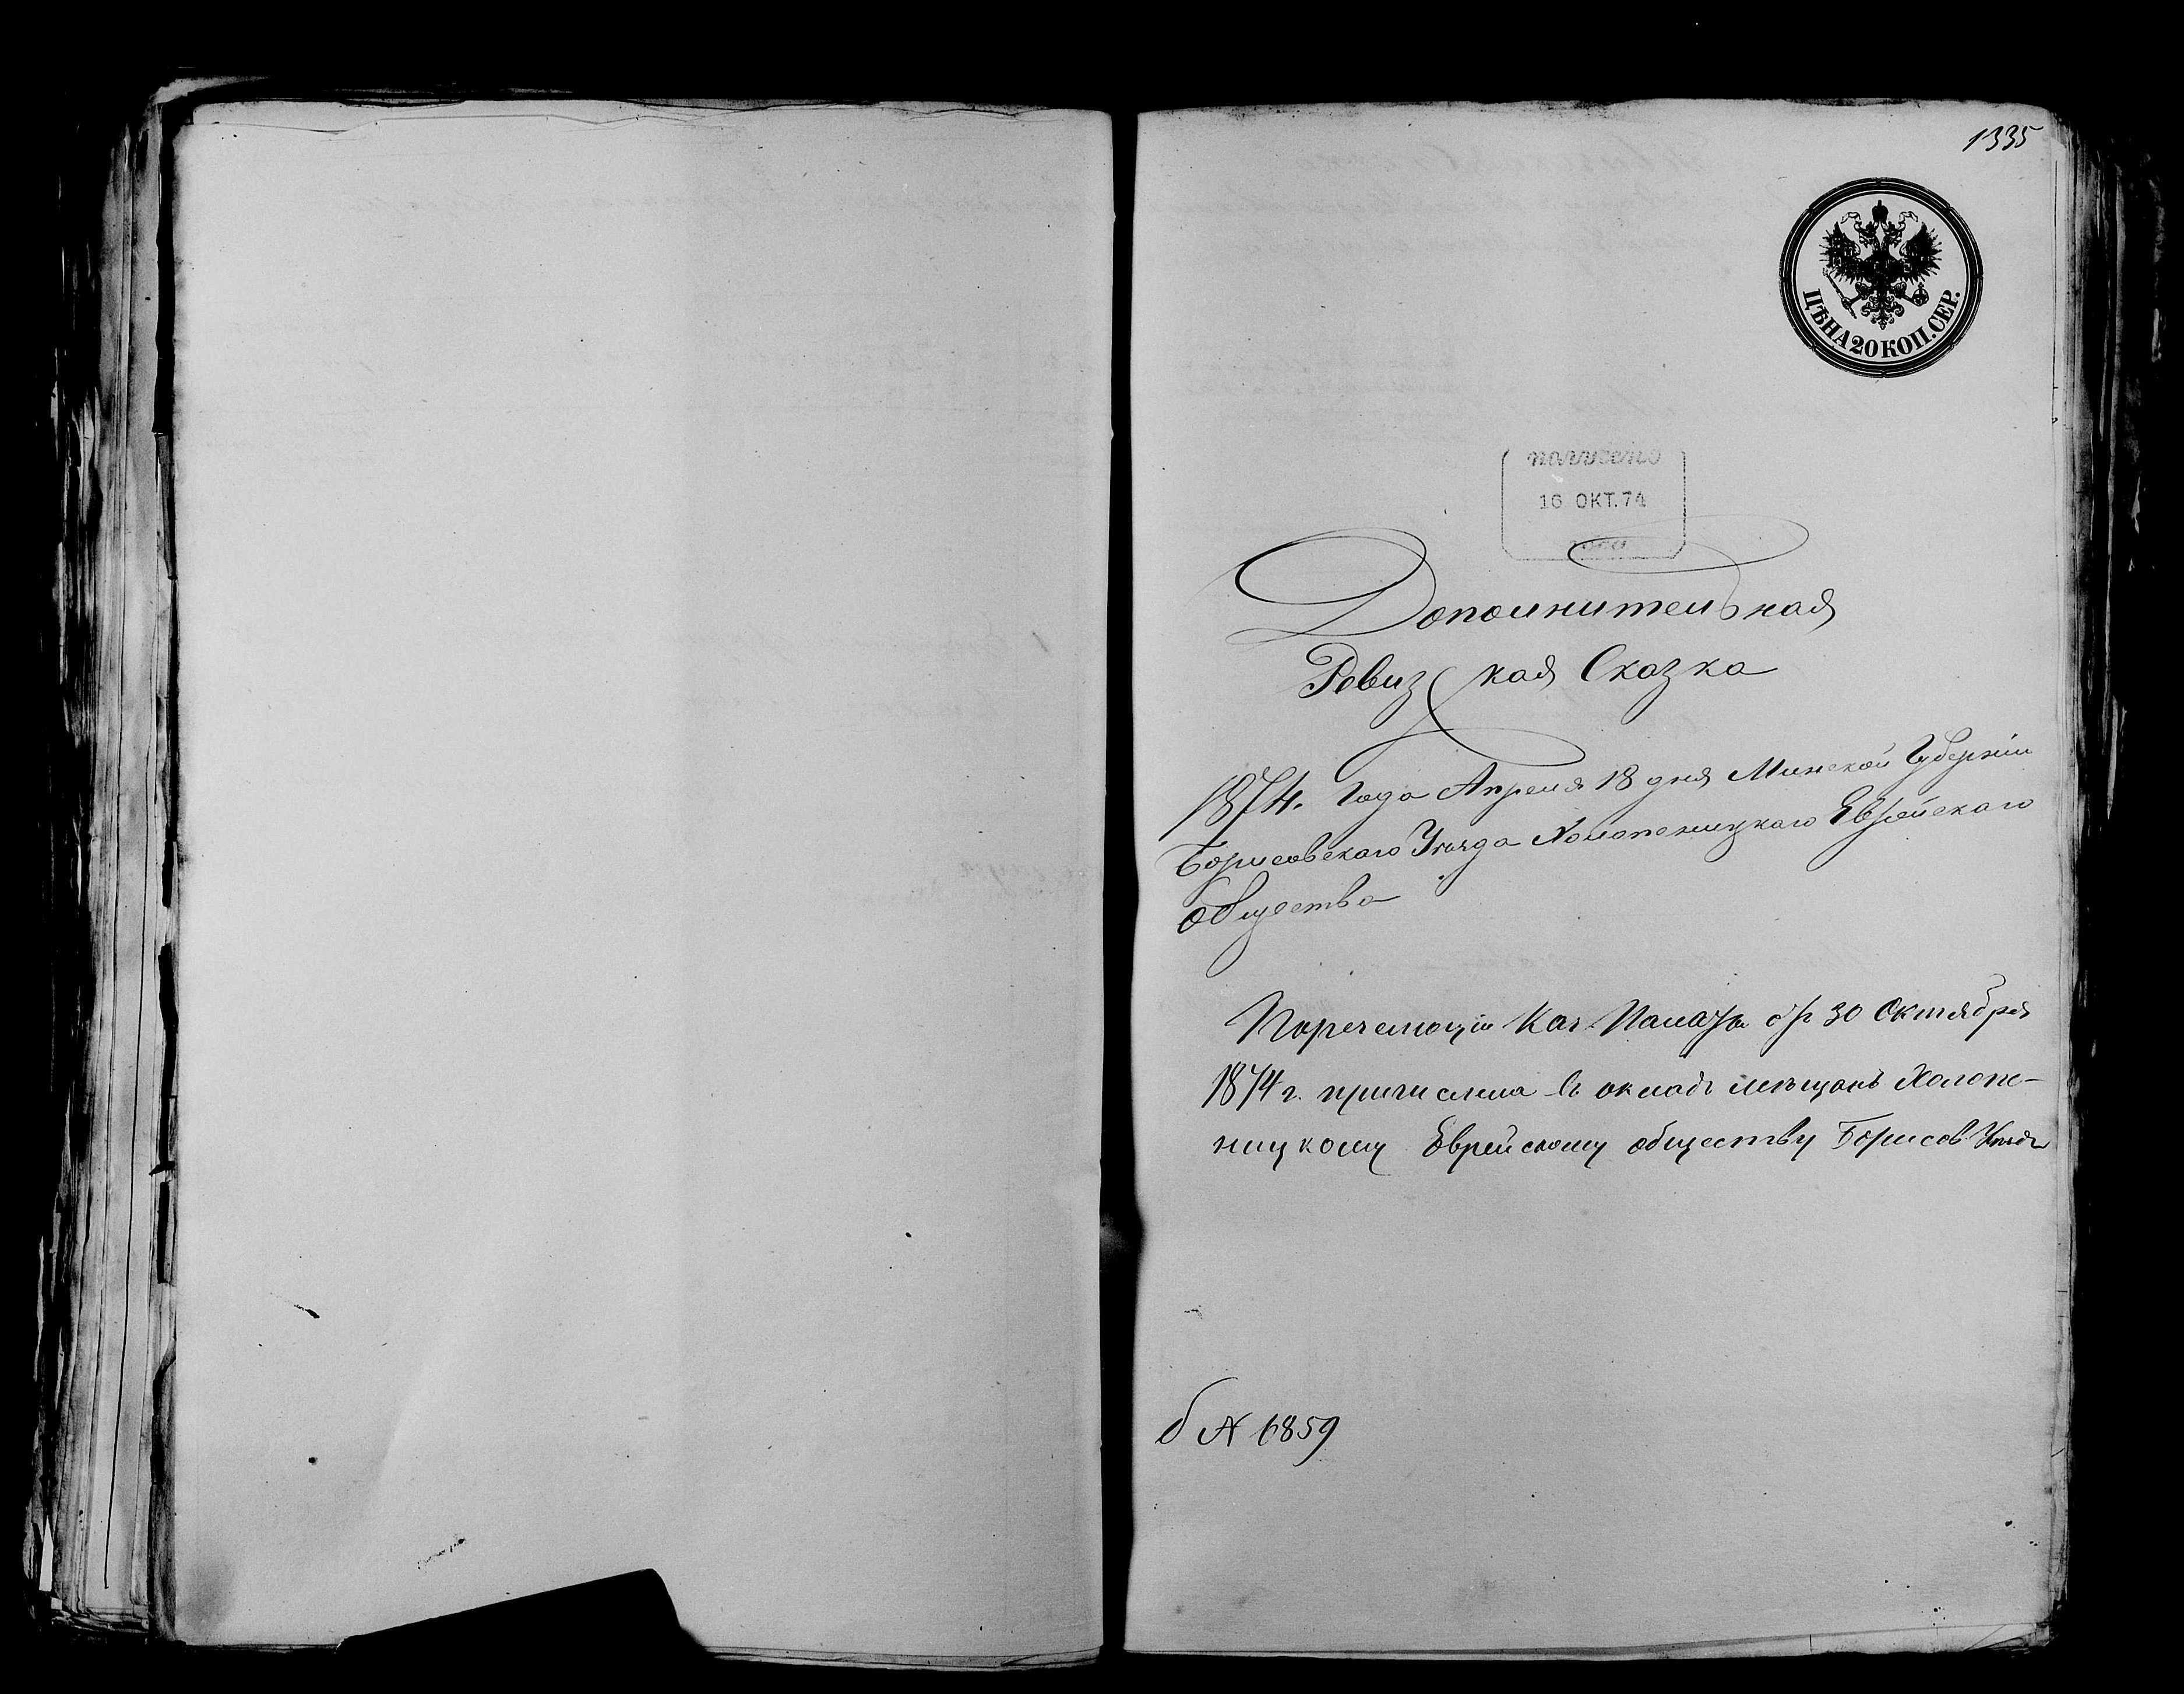 1335
ЦѢНА 20 КОП. СЕР.
получено
16 ОКТ. 74
Дополнительная
Ревизская Сказка
1874. Года Апреля 18 дня Минской Губерніи
Борисовскаго Уезда Холопеницкаго Еврейскаго
общества
Каз. Палаты 30 Октября
1874 г. причислена въ окладъ мещанъ Холопе-
ницкому Еврейскому обществу Борисов Уезда
6859